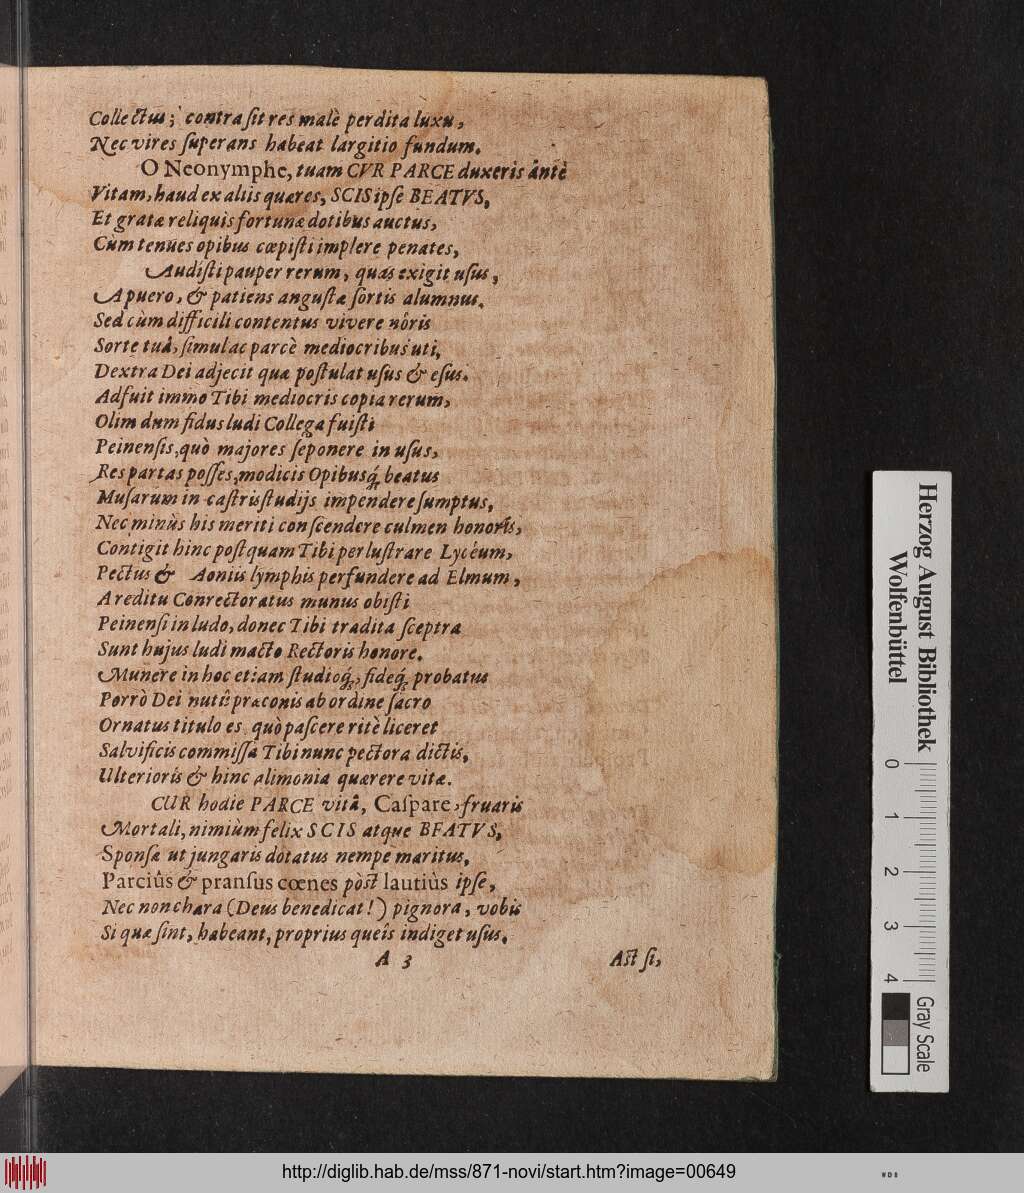 Collectus; contra ſit res malè perdita luxu,
Nec vires ſuperans habeat largitio fundum.
O Neonymphe, tuam CVR PARCE duxeris ântè
Vitam, haud ex aliis quæres, SCIS ipſe BEATVS,
Et gratæ reliquis fortunæ dotibus auctus,
Cùm tenues opibus cœpiſti implere penates,
Audiſti pauper rerum, quas exigit uſus,
A puero, & patiens anguſtæ ſortis alumnus.
Sed cùm difficili contentus vivere nôris
Sorte tuâ, ſimul ac parcè mediocribus uti,
Dextra Dei adjecit quæ poſtulat uſus & eſus.
Adfuit immo Tibi mediocris copia rerum,
Olim dum fidus ludi Collega fuiſti
Peinenſis, quò majores ſeponere in uſus,
Res partas poſſes, modicis Opibusq́; beatus
Muſarum in caſtris ſtudijs impendere ſumptus,
Nec minùs his meriti conſcendere culmen honoris,
Contigit hinc poſtquam Tibi perluſtrare Lycéum,
Pectus & Aoniis lymphis perfundere ad Elmum,
A reditu Conrectoratus munus obiſti
Peinenſi in ludo, donec Tibi tradita ſceptra
Sunt hujus ludi macto Rectoris honore.
Munere in hoc etiam ſtudioq́;, fideq́; probatus
Porrò Dei nutu præconis ab ordine ſacro
Ornatus titulo es, quò paſcere ritè liceret
Salvificis commiſſa Tibi nunc pectora dictis,
Ulterioris & hinc alimonia quærere vitæ.
CUR hodie PARCE vitâ, Caſpare, fruaris
Mortali, nimiùm felix SCIS atque BEATVS,
Sponſæ ut jungaris dotatus nempe maritus,
Parciûs & pranſus cœnes pòſt lautiùs ipſe,
Nec non chara (Deus benedicat!) pignora, vobis
Si quæ ſint, habeant, proprius queîs indiget uſus.
A 3 Aſt ſi,
Herzog August Bibliothek
Wolfenbüttel
0 1 2 3 4
Gray Scale
http://diglib.hab.de/mss/871-novi/start.htm?image=00649